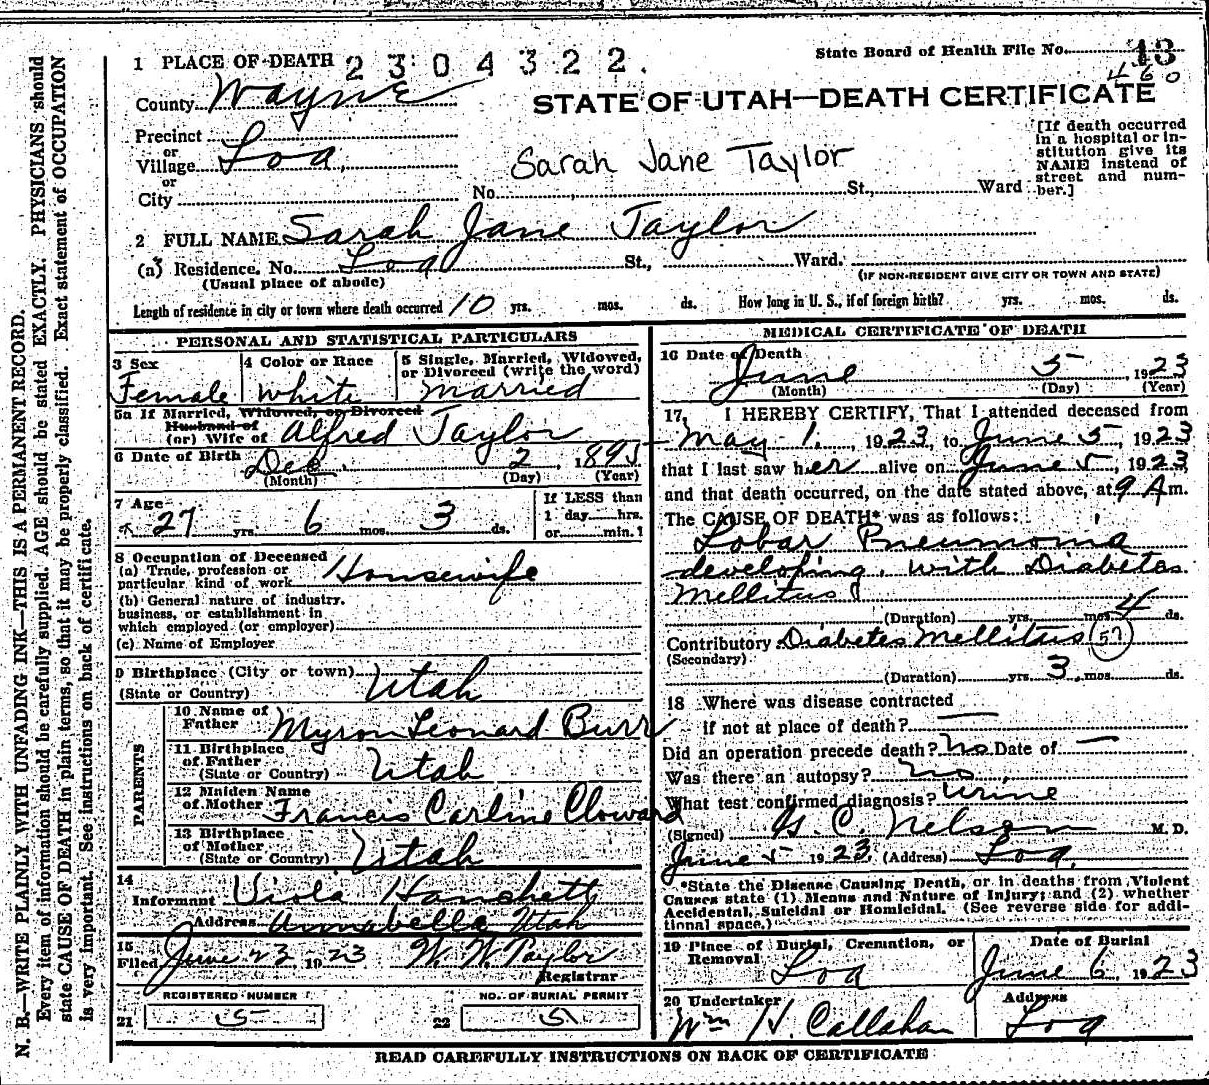 State Board of Health File No. 13
460
1 PLACE OF DEATH 2304322.
County Wayne
STATE OF UTAH—DEATH CERTIFICATE
Precinct
or
Village Loa,
or
City
Sarah Jane Taylor
No. St., Ward
[If death occurred
in a hospital or in-
stitution give its
NAME instead of
street and num-
ber.]
2 FULL NAME Sarah Jane Taylor
(a) Residence. No. Loa St., Ward.
(Usual place of abode)
(IF NON-RESIDENT GIVE CITY OR TOWN AND STATE)
Length of residence in city or town where death occurred 10 yrs. mos. ds. How long in U. S., if of foreign birth? yrs. mos. ds.
PERSONAL AND STATISTICAL PARTICULARS
3 Sex
Female
4 Color or Race
White
5 Single, Married, Widowed,
or Divorced (write the word)
Married
5a If Married, Widowed, or Divorced
Husband of
(or) Wife of Alfred Taylor
6 Date of Birth Dec. 2, 1895
(Month) (Day) (Year)
7 Age
27 yrs. 6 mos. 3 ds.
If LESS than
1 day hrs.
or min.
8 Occupation of Deceased
(a) Trade, profession or
particular kind of work Housewife
(b) General nature of industry,
business, or establishment in
which employed (or employer)
(c) Name of Employer
9 Birthplace (City or town)
(State or Country) Utah
PARENTS
10 Name of
Father Myron Leonard Burr
11 Birthplace
of Father
(State or Country) Utah
12 Maiden Name
of Mother Francis Carline Cloward
13 Birthplace
of Mother
(State or Country) Utah
14
Informant Viola Hanchett
Address Annabella Utah
15
Filed June 23, 1923 W. W. Taylor
Registrar
REGISTERED NUMBER
21 5
NO. OF BURIAL PERMIT
22 51
MEDICAL CERTIFICATE OF DEATH
16 Date of Death
June 5, 1923
(Month) (Day) (Year)
17, I HEREBY CERTIFY, That I attended deceased from
May 1., 1923, to June 5, 1923
that I last saw her alive on June 5, 1923
and that death occurred, on the date stated above, at 9 A m.
The CAUSE OF DEATH* was as follows:
Lobar Pneumonia
developing, with Diabetes
Mellitus
(Duration) yrs. mos. 4 ds.
Contributory Diabetes Mellitus 57
(Secondary)
(Duration) yrs. 3 mos. ds.
18 Where was disease contracted
if not at place of death?
Did an operation precede death? No Date of
Was there an autopsy? no,
What test confirmed diagnosis? Urine
(Signed) G. C. Nelson M. D.
June 5 1923, (Address) Loa,
*State the Disease Causing Death, or in deaths from Violent
Causes state (1) Means and Nature of Injury; and (2) whether
Accidental, Suicidal or Homicidal. (See reverse side for addi-
tional space.)
19 Place of Burial, Cremation, or
Removal
Loa
Date of Burial
June 6, 1923
20 Undertaker
Wm H. Callahan
Address
Loa
READ CAREFULLY INSTRUCTIONS ON BACK OF CERTIFICATE
N. B.—WRITE PLAINLY WITH UNFADING INK—THIS IS A PERMANENT RECORD.
Every item of information should be carefully supplied. AGE should be stated EXACTLY. PHYSICIANS should
state CAUSE OF DEATH in plain terms, so that it may be properly classified. Exact statement of OCCUPATION
is very important. See instructions on back of certificate.